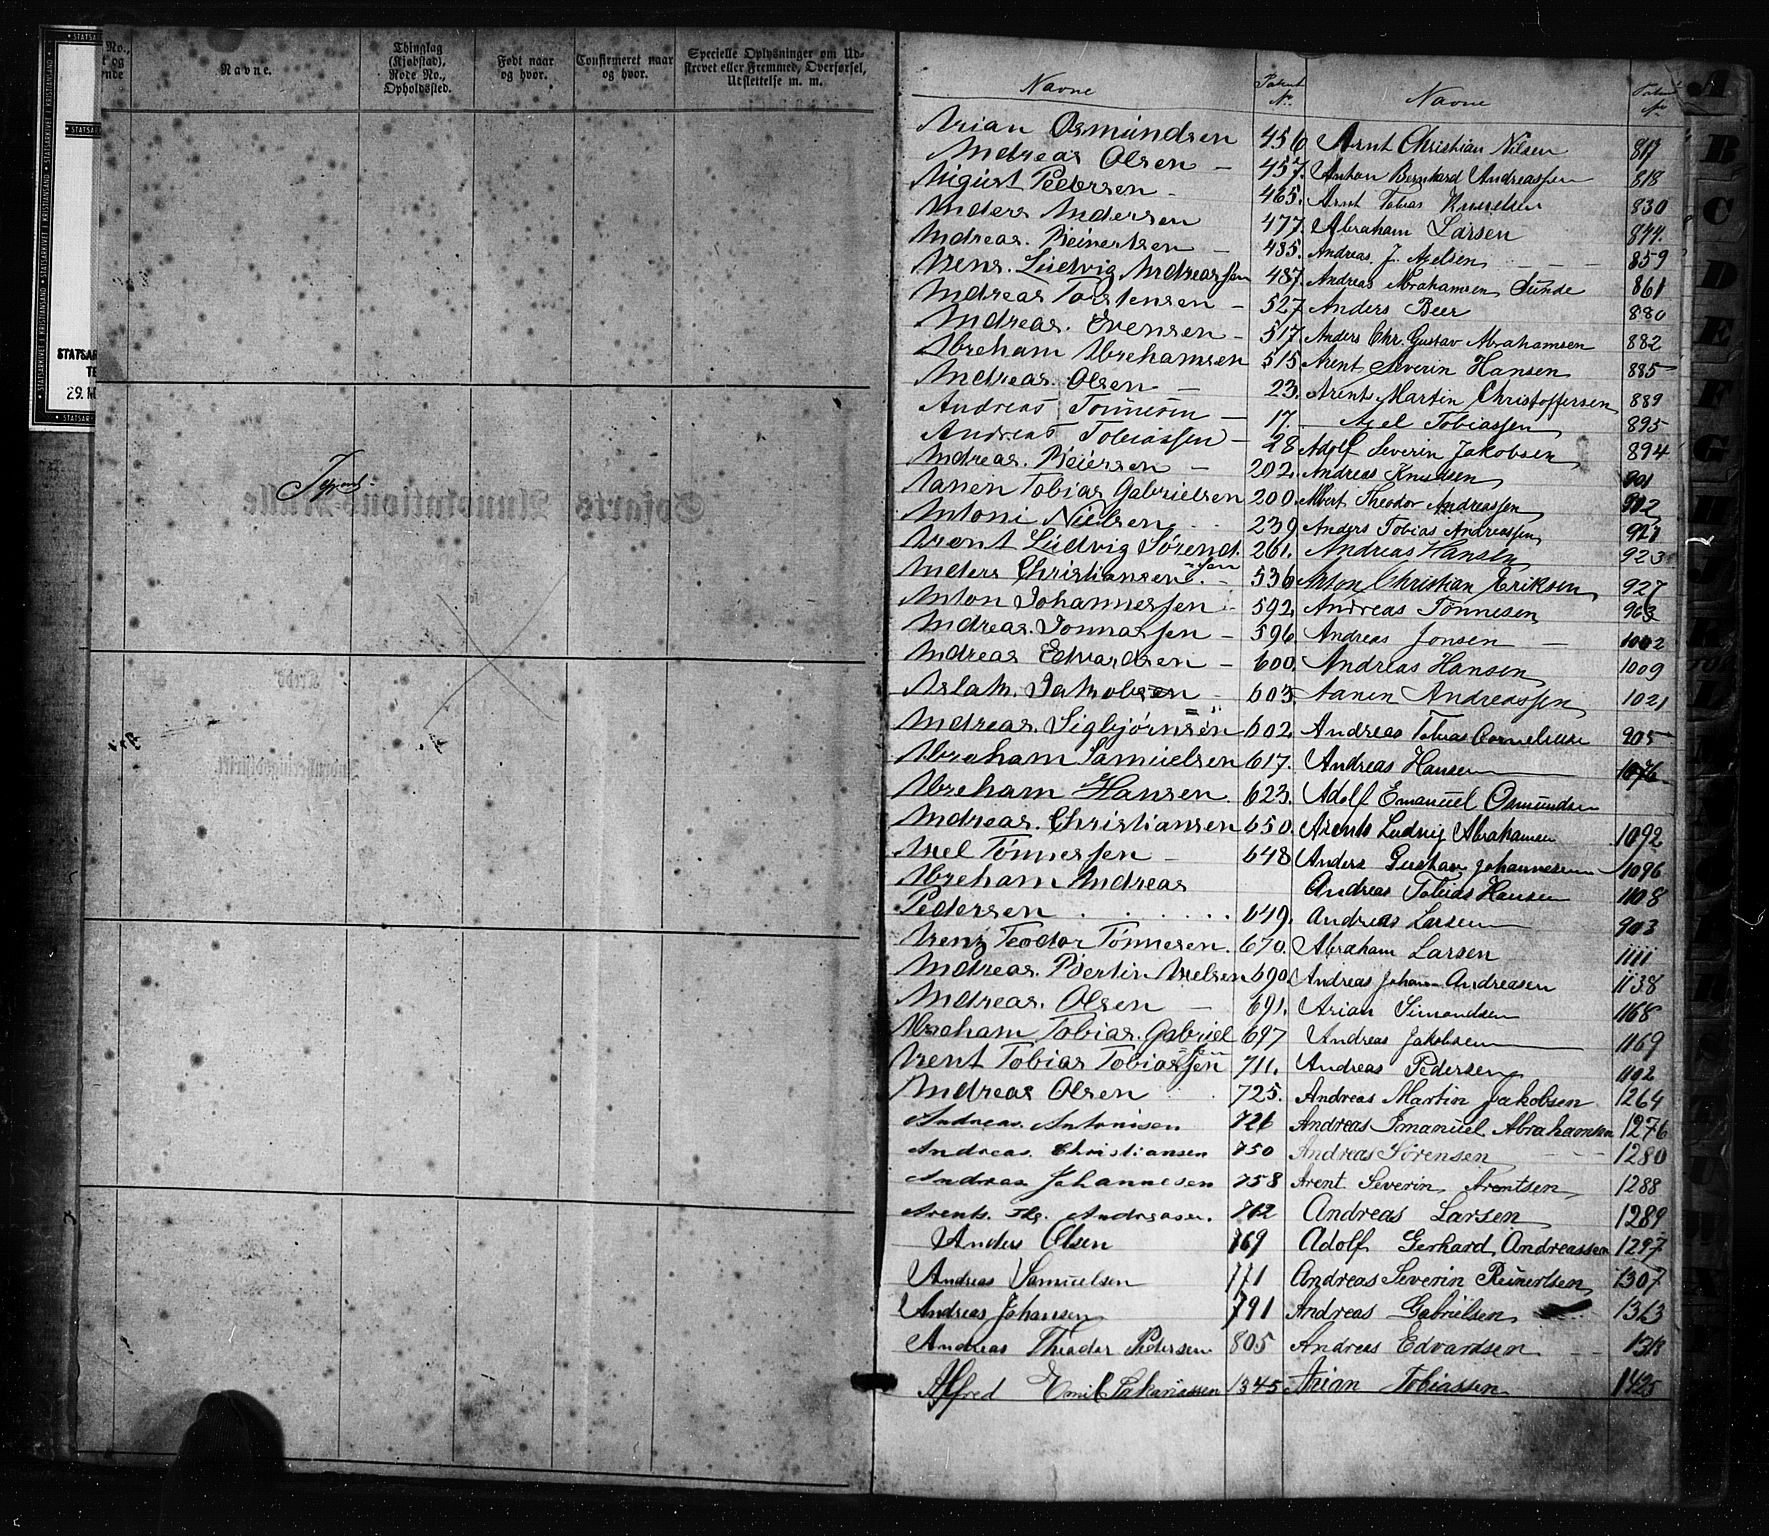 Navne.
Thinglag
(Kjøbstad),
Rode No.,
Opholdssted.
Født naar
og hvor.
Confirmeret naar
og hvor.
Specielle Oplysninger om Ud-
skrevet eller Fremmed, Overførsel,
Udslettelse m. m.
Navne
Patent
No.
Arian Osmundsen 456
Andreas Olsen - 457.
August Pedersen - 465.
Anders Andersen 477.
Andreas Reinertsen - 485.
Arent Ludvig Andreassen 487.
Andreas Torstensen - 527
Andreas Evensen - 517.
Abreham Abrehamsen 515
Andreas Olsen - 23.
Andreas Tønnesen - 17.
Andreas Tobiassen - 28
Andreas Reiersen - 202.
Aanen Tobias Gabrielsen 200
Antoni Nielsen 239
Arent Ludvig Sørend.
=sen 261.
Anders Christiansen - 536
Anton Johannessen - 592
Andreas Jonnassen - 596
Andreas Edvardsen - 600
Aslak Jakobsen - 603.
Andreas Sigbjørnsen 602
Abreham Samuelsen 617.
Abreham Hansen. 623.
Andreas Christiansen 650.
Axel Tønnessen - 648
Abreham Andreas
Pedersen . . . . . . 649.
Arent Teodor Tønnesen. 670.
Andreas Bertin Axelsen 690.
Andreas Olsen - 691.
Abraham Tobias Gabriel
=sen 697
Arent Tobias Tobiassen 711.
Andreas Olsen 725.
Andreas Antonisen 726
Andreas Christiansen 750
Andreas Johannesen 758
Arent Th. Andreasen. 762
Anders Olsen 769
Andreas Samuelsen 771
Andreas Johansen 791
Andreas Theodor Pedersen 805
Alfred Emil Sakariassen 1345
Navne
Patent
No.
Arnt Christian Nilsen 817
Anton Bernhard Andreassen 818
Arnt Tobias Knudsen 830
Abraham Larsen 844.
Andreas J. Axelsen 859
Andreas Abrahamsen Sunde 861
Anders Beer 880
Anders Chr. Gustav Abrahamsen 882
Arent Severin Hansen 885
Arent Martin Christoffersen 889
Axel Tobiassen 895
Adolf Severin Jakobsen 894
Andreas Knudsen 901
Albert Theodor Andreassen 912
Anders Tobias Andreassen 921
Andreas Hansen 923
Anton Christian Eriksen 927
Andreas Tønnesen 963
Andreas Jonsen - 1002
Andreas Hansen 1009
Aanen Andreassen 1021
Andreas Tobias Corneliusen 905
Andreas Hansen 1076
Adolf Emanuel Osmundsen
Arent Ludvig Abrahamsen 1092
Anders Gustav Johannesen 1096
Andreas Tobias Hansen 1108
Andreas Larsen 903
Abraham Larsen 1111
Andreas Johan Andreasen 1138
Arian Simondsen 1168
Andreas Jakobsen 1169
Andreas Pedersen 1102
Andreas Martin Jakobsen 1264
Andreas Emanuel Abrahamsen 1276
Andreas Sørensen 1280
Arent Severin Arentsen 1288
Andreas Larsen 1289
Adolf Gerhard Andreassen 1297
Andreas Severin Reinertsen 1307
Andreas Gabrielsen 1363
Andreas Edvardsen
Arian Tobiassen 1425
A
B
C
D
E
F
G
H